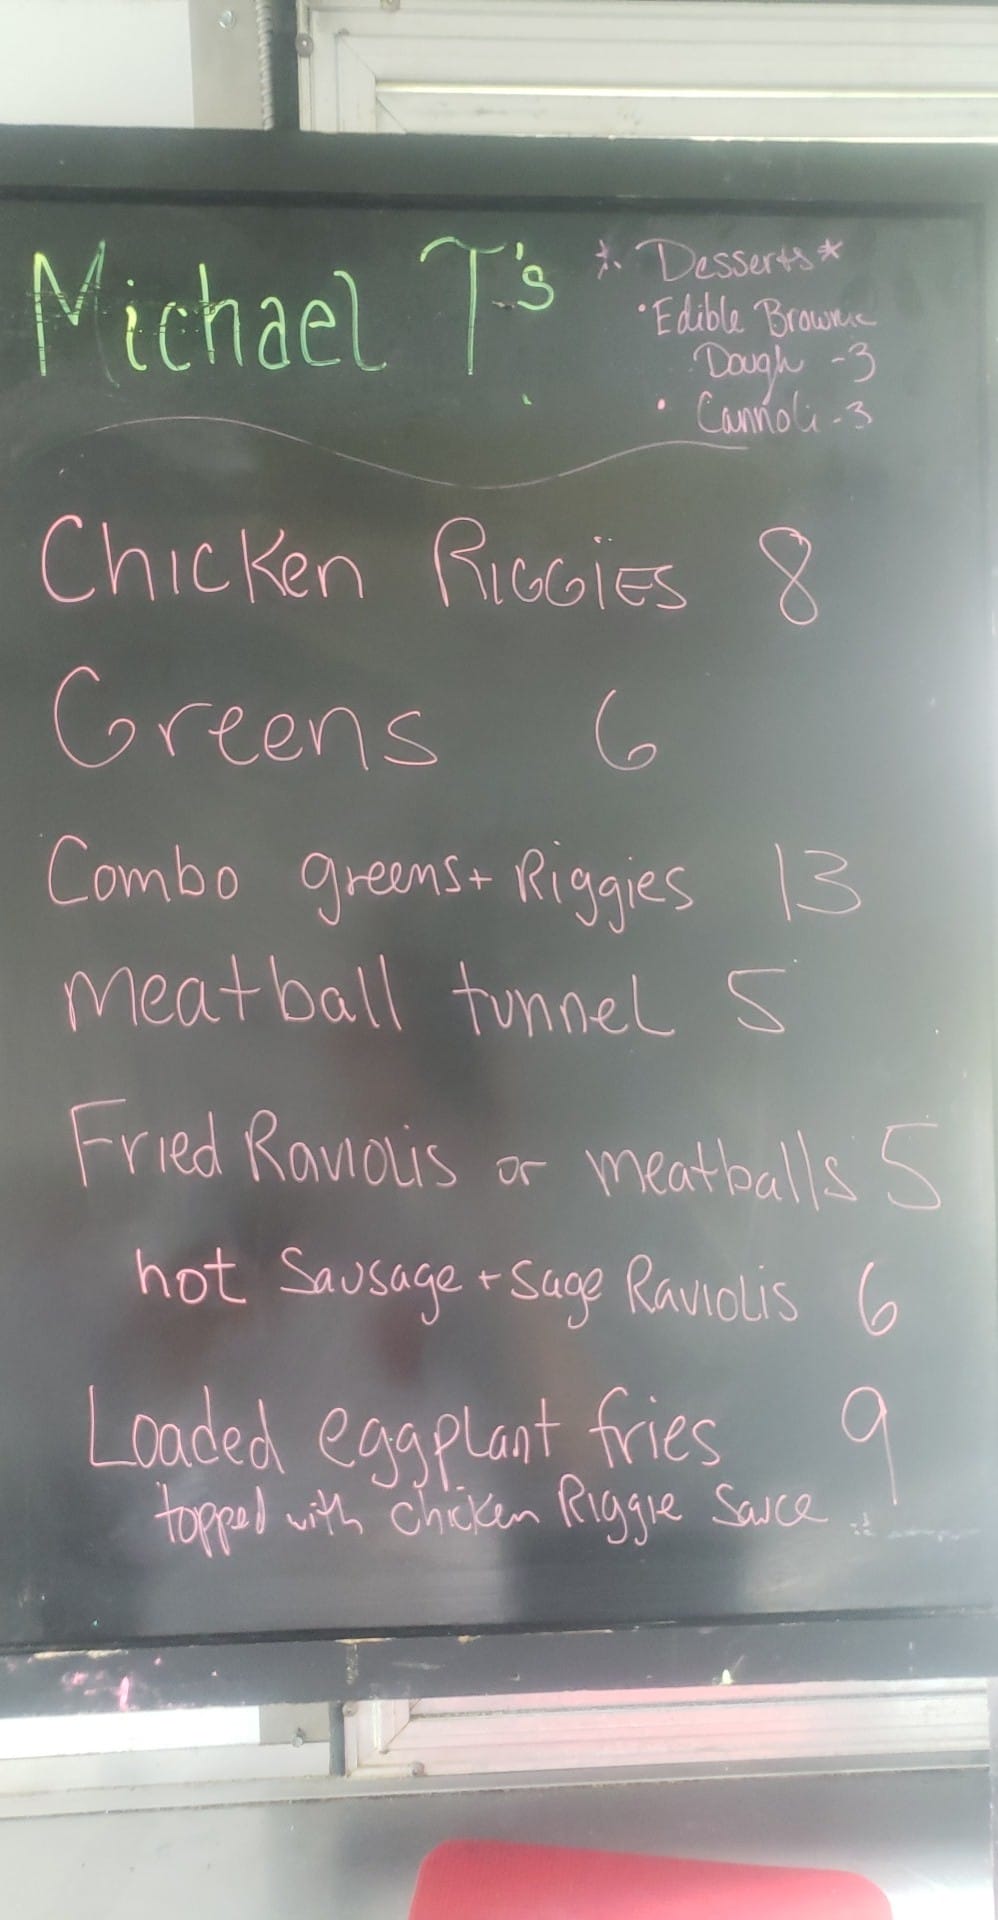 Michael T's
* Desserts *
• Edible Brownie
Dough - 3
• Cannoli - 3
Chicken RIGGiES 8
Greens 6
Combo greens + Riggies 13
meatball tunnel 5
Fried Raviolis or meatballs 5
hot Sausage + Sage Raviolis 6
Loaded eggplant fries 9
topped with chicken Riggie Sauce